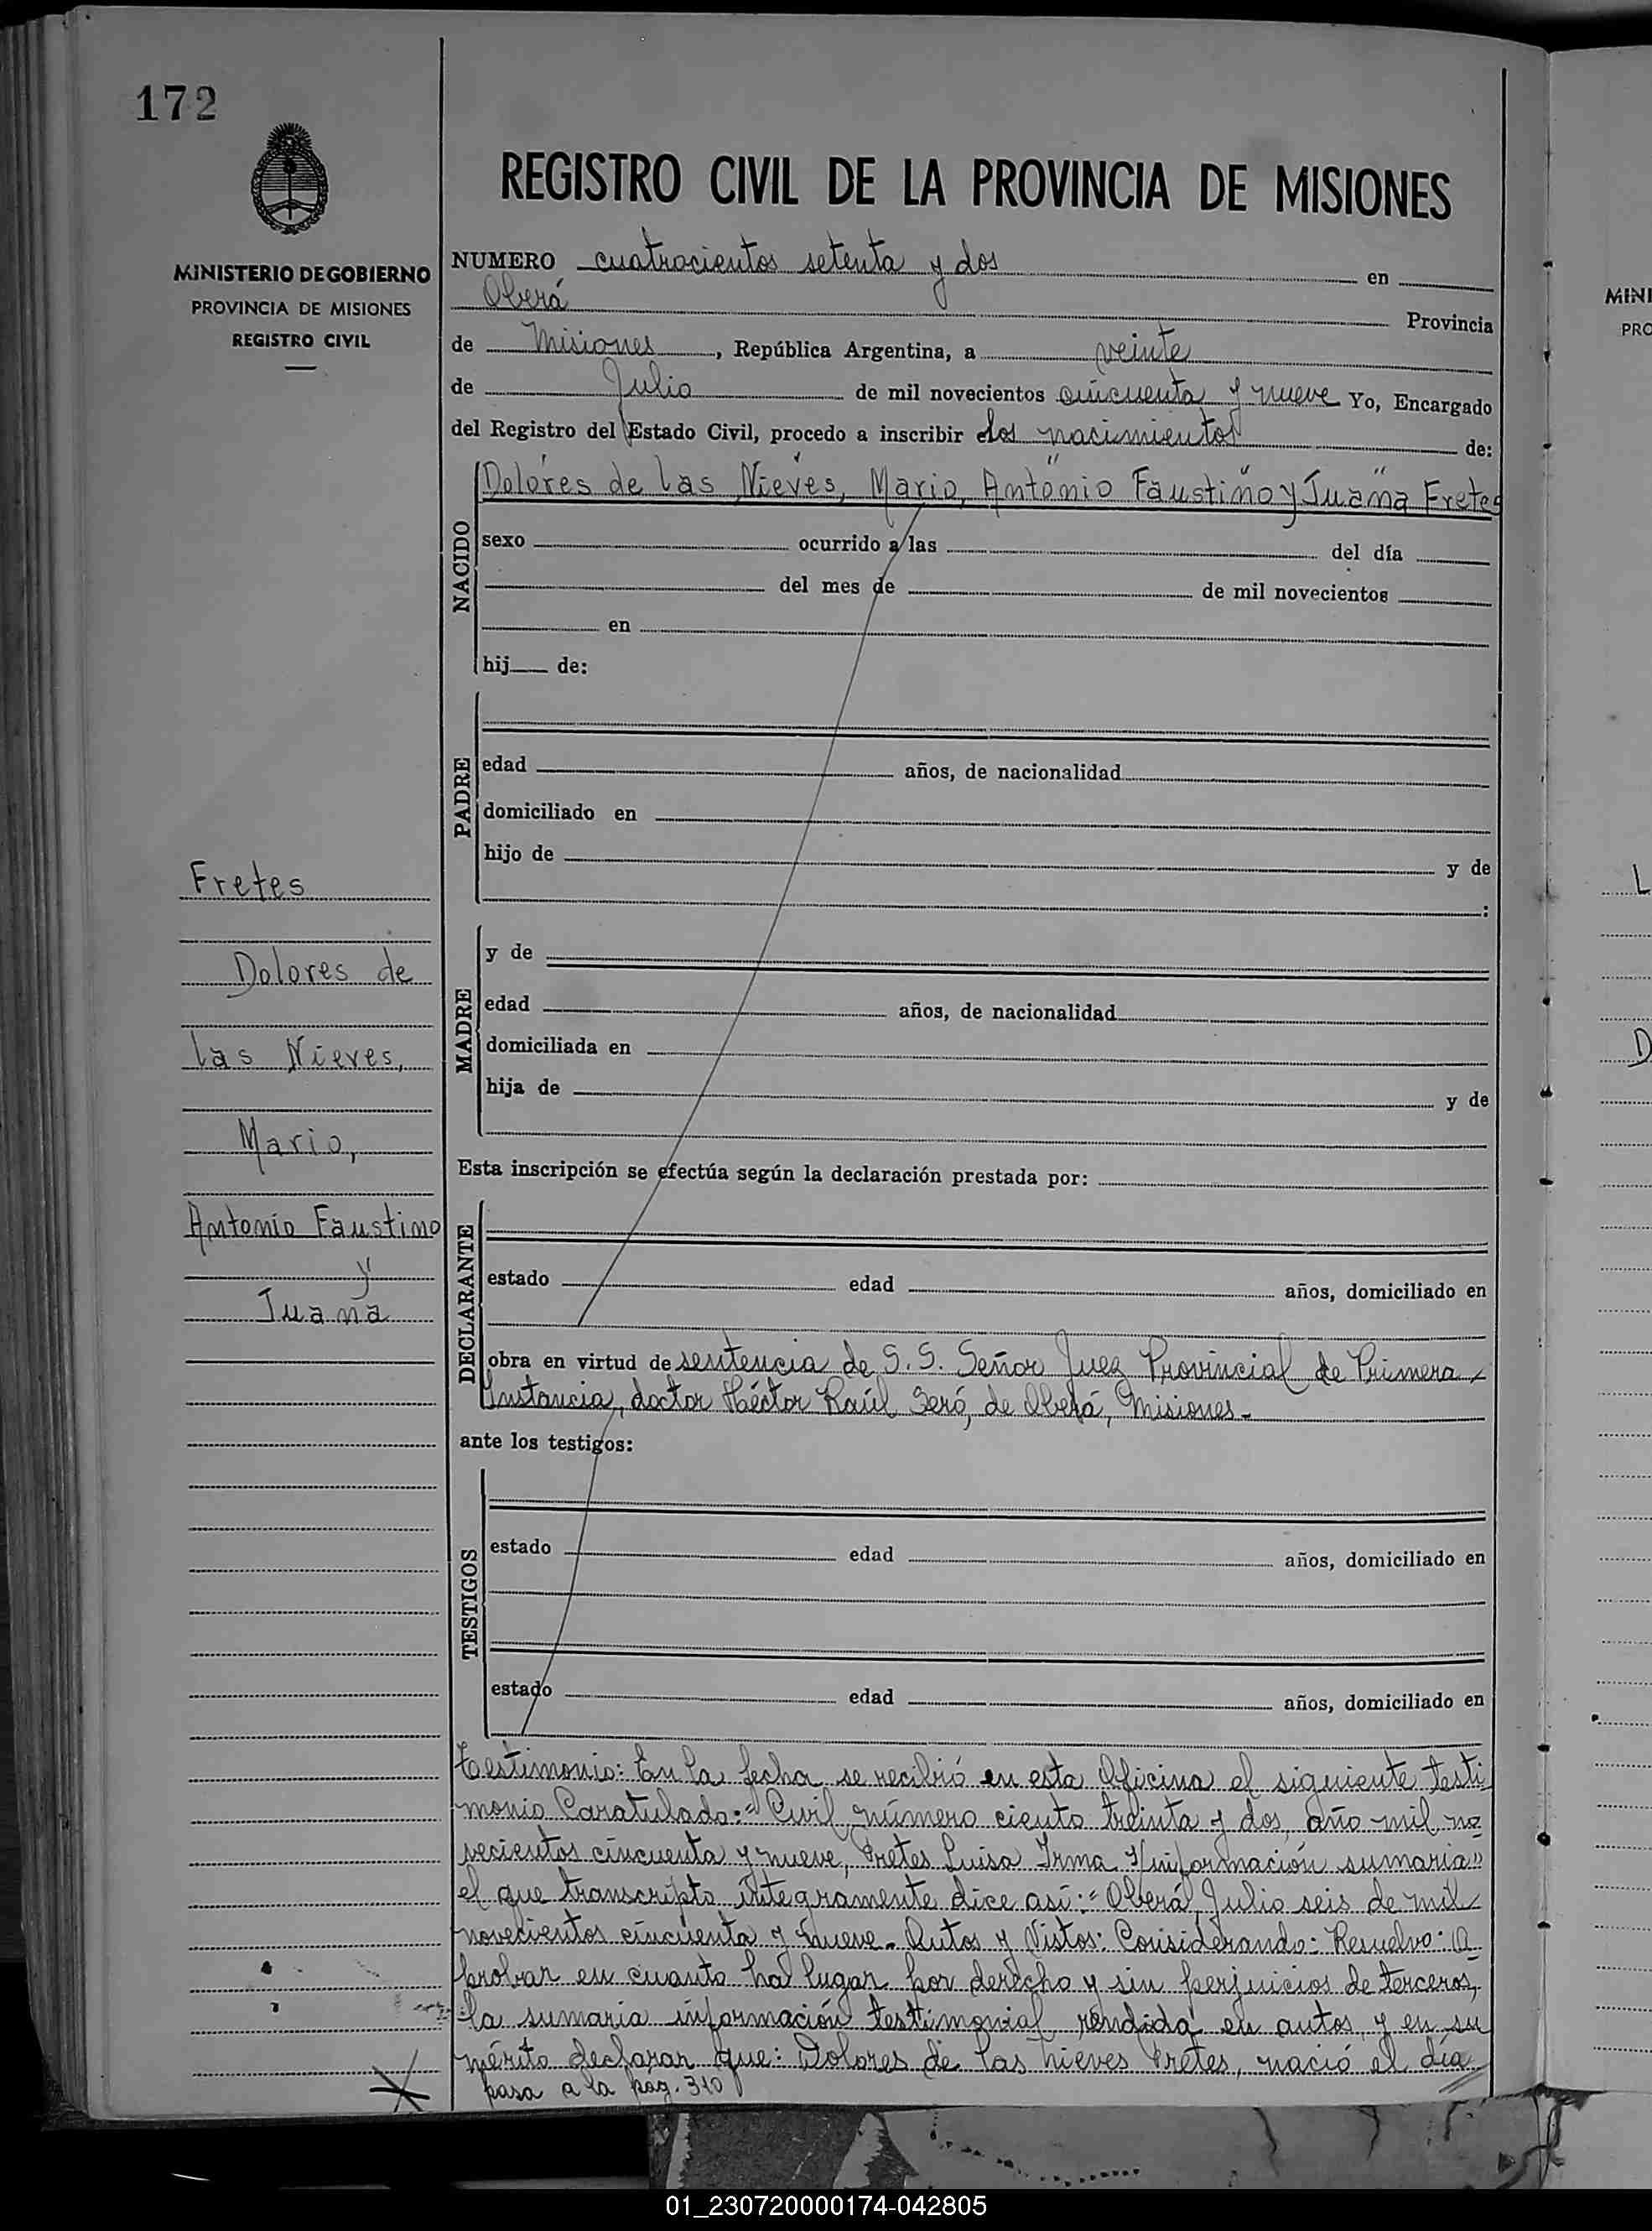 172
REGISTRO CIVIL DE LA PROVINCIA DE MISIONES
MINISTERIO DE GOBIERNO
PROVINCIA DE MISIONES
REGISTRO CIVIL
NUMERO cuatrocientos setenta y dos en
Oberá Provincia
de Misiones, República Argentina, a veinte
de Julio de mil novecientos cincuenta y nueve Yo, Encargado
del Registro del Estado Civil, procedo a inscribir los nacimientos de:
NACIDO
Dolores de las Nieves, Mario, Antonio Faustino y Juana Fretes
sexo ocurrido a las del día
del mes de de mil novecientos
en
hij de:
PADRE
edad años, de nacionalidad
domiciliado en
hijo de y de
:
MADRE
y de
edad años, de nacionalidad
domiciliada en
hija de y de
Esta inscripción se efectúa según la declaración prestada por:
DECLARANTE
estado edad años, domiciliado en
obra en virtud de sentencia de S. S. Señor Juez Provincial de Primera
Instancia, doctor Héctor Raúl Seró, de Oberá, Misiones-
ante los testigos:
TESTIGOS
estado edad años, domiciliado en
estado edad años, domiciliado en
Testimonio: En la fecha se recibió en esta Oficina el siguiente testi
monio Caratulado: "Civil número ciento treinta y dos, año mil no
vecientos cincuenta y nueve, Fretes Luisa Irma s/información sumaria"
el que transcripto íntegramente dice así: "Oberá, Julio seis de mil
novecientos cincuenta y nueve. Autos y Vistos: Considerando: Resuelvo: A
probar en cuanto ha lugar por derecho y sin perjuicios de terceros,
la sumaria información testimonial rendida en autos, y en su
mérito declarar que: Dolores de las nieves Fretes, nació el día
pasa a la pág. 310
Fretes
Dolores de
las Nieves,
Mario,
Antonio Faustino
y
Juana
MINI
PRO
L
D
01_230720000174-042805